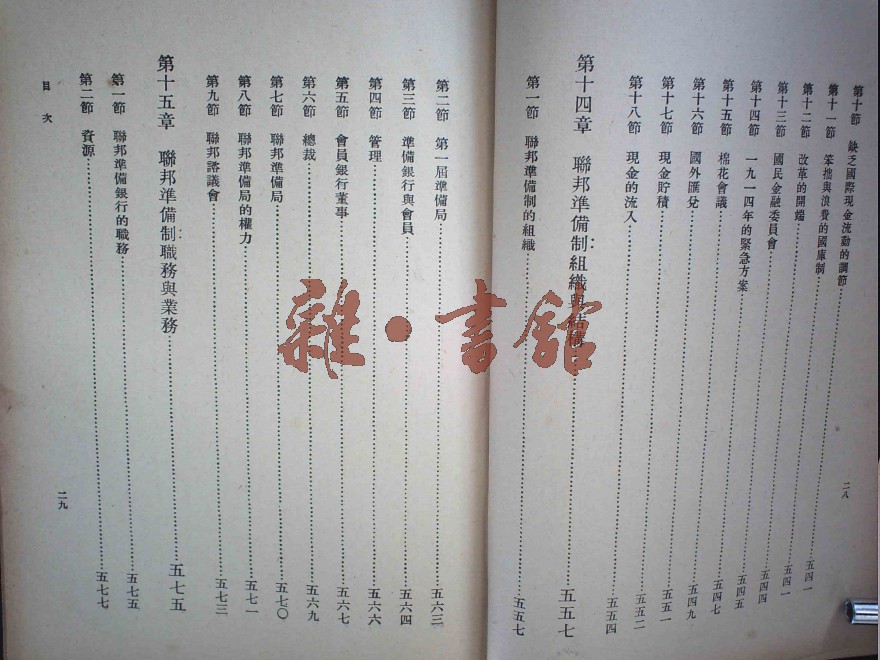 第十節 缺乏國際現金流動的調節……五四一
第十一節 笨拙與浪費的國庫制……五四一
第十二節 改革的開端……五四四
第十三節 國民金融委員會……五四五
第十四節 一九一四年的緊急方案……五四七
第十五節 棉花會議……五四九
第十六節 國外匯兌……五五一
第十七節 現金貯積……五五二
第十八節 現金的流入……五五四
第十四章 聯邦準備制:組織與結構……五五七
第一節 聯邦準備制的組織……五五七
二八
第二節 第一屆準備局……五六三
第三節 準備銀行與會員……五六四
第四節 管理……五六六
第五節 會員銀行董事……五六七
第六節 總裁……五六九
第七節 聯邦準備局……五七〇
第八節 聯邦準備局的權力……五七一
第九節 聯邦諮議會……五七三
第十五章 聯邦準備制:職務與業務……五七五
第一節 聯邦準備銀行的職務……五七五
第二節 資源……五七七
目次
二九
雜·書館